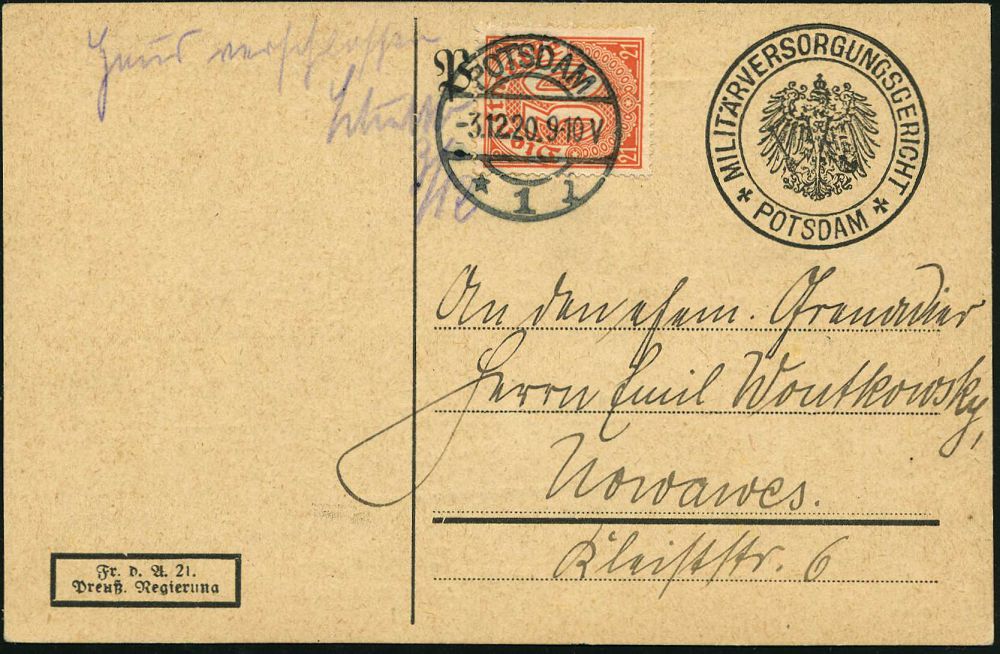 Haus verschlossen
POTSDAM
-3.12.20. 9-10 V.
* 1 i
21
21
30
MILITÄRVERSORGUNGSGERICHT
* POTSDAM *
An den ehem. Grenadier
Herrn Emil Wontkowsky,
Nowawes.
Kleiststr. 6
Fr. d. A. 21.
Preuß. Regierung